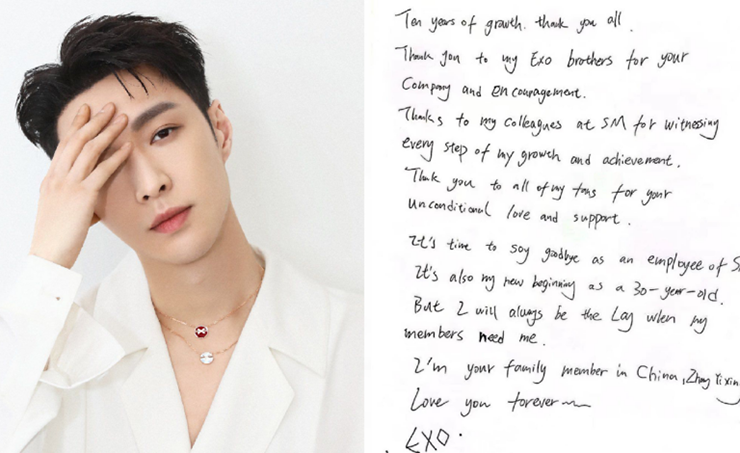 Ten years of growth. thank you all.
Thank you to my Exo brothers for your
Company and encouragement.
Thanks to my colleagues at SM for witnessing
every step of my growth and achievement.
Thank you to all of my fans for your
unconditional love and support.
It's time to say goodbye as an employee of S
It's also my new beginning as a 30-year-old.
But I will always be the Lay when my
members need me.
I'm your family member in China, Zhang Yixing
Love you forever~~
EXO.